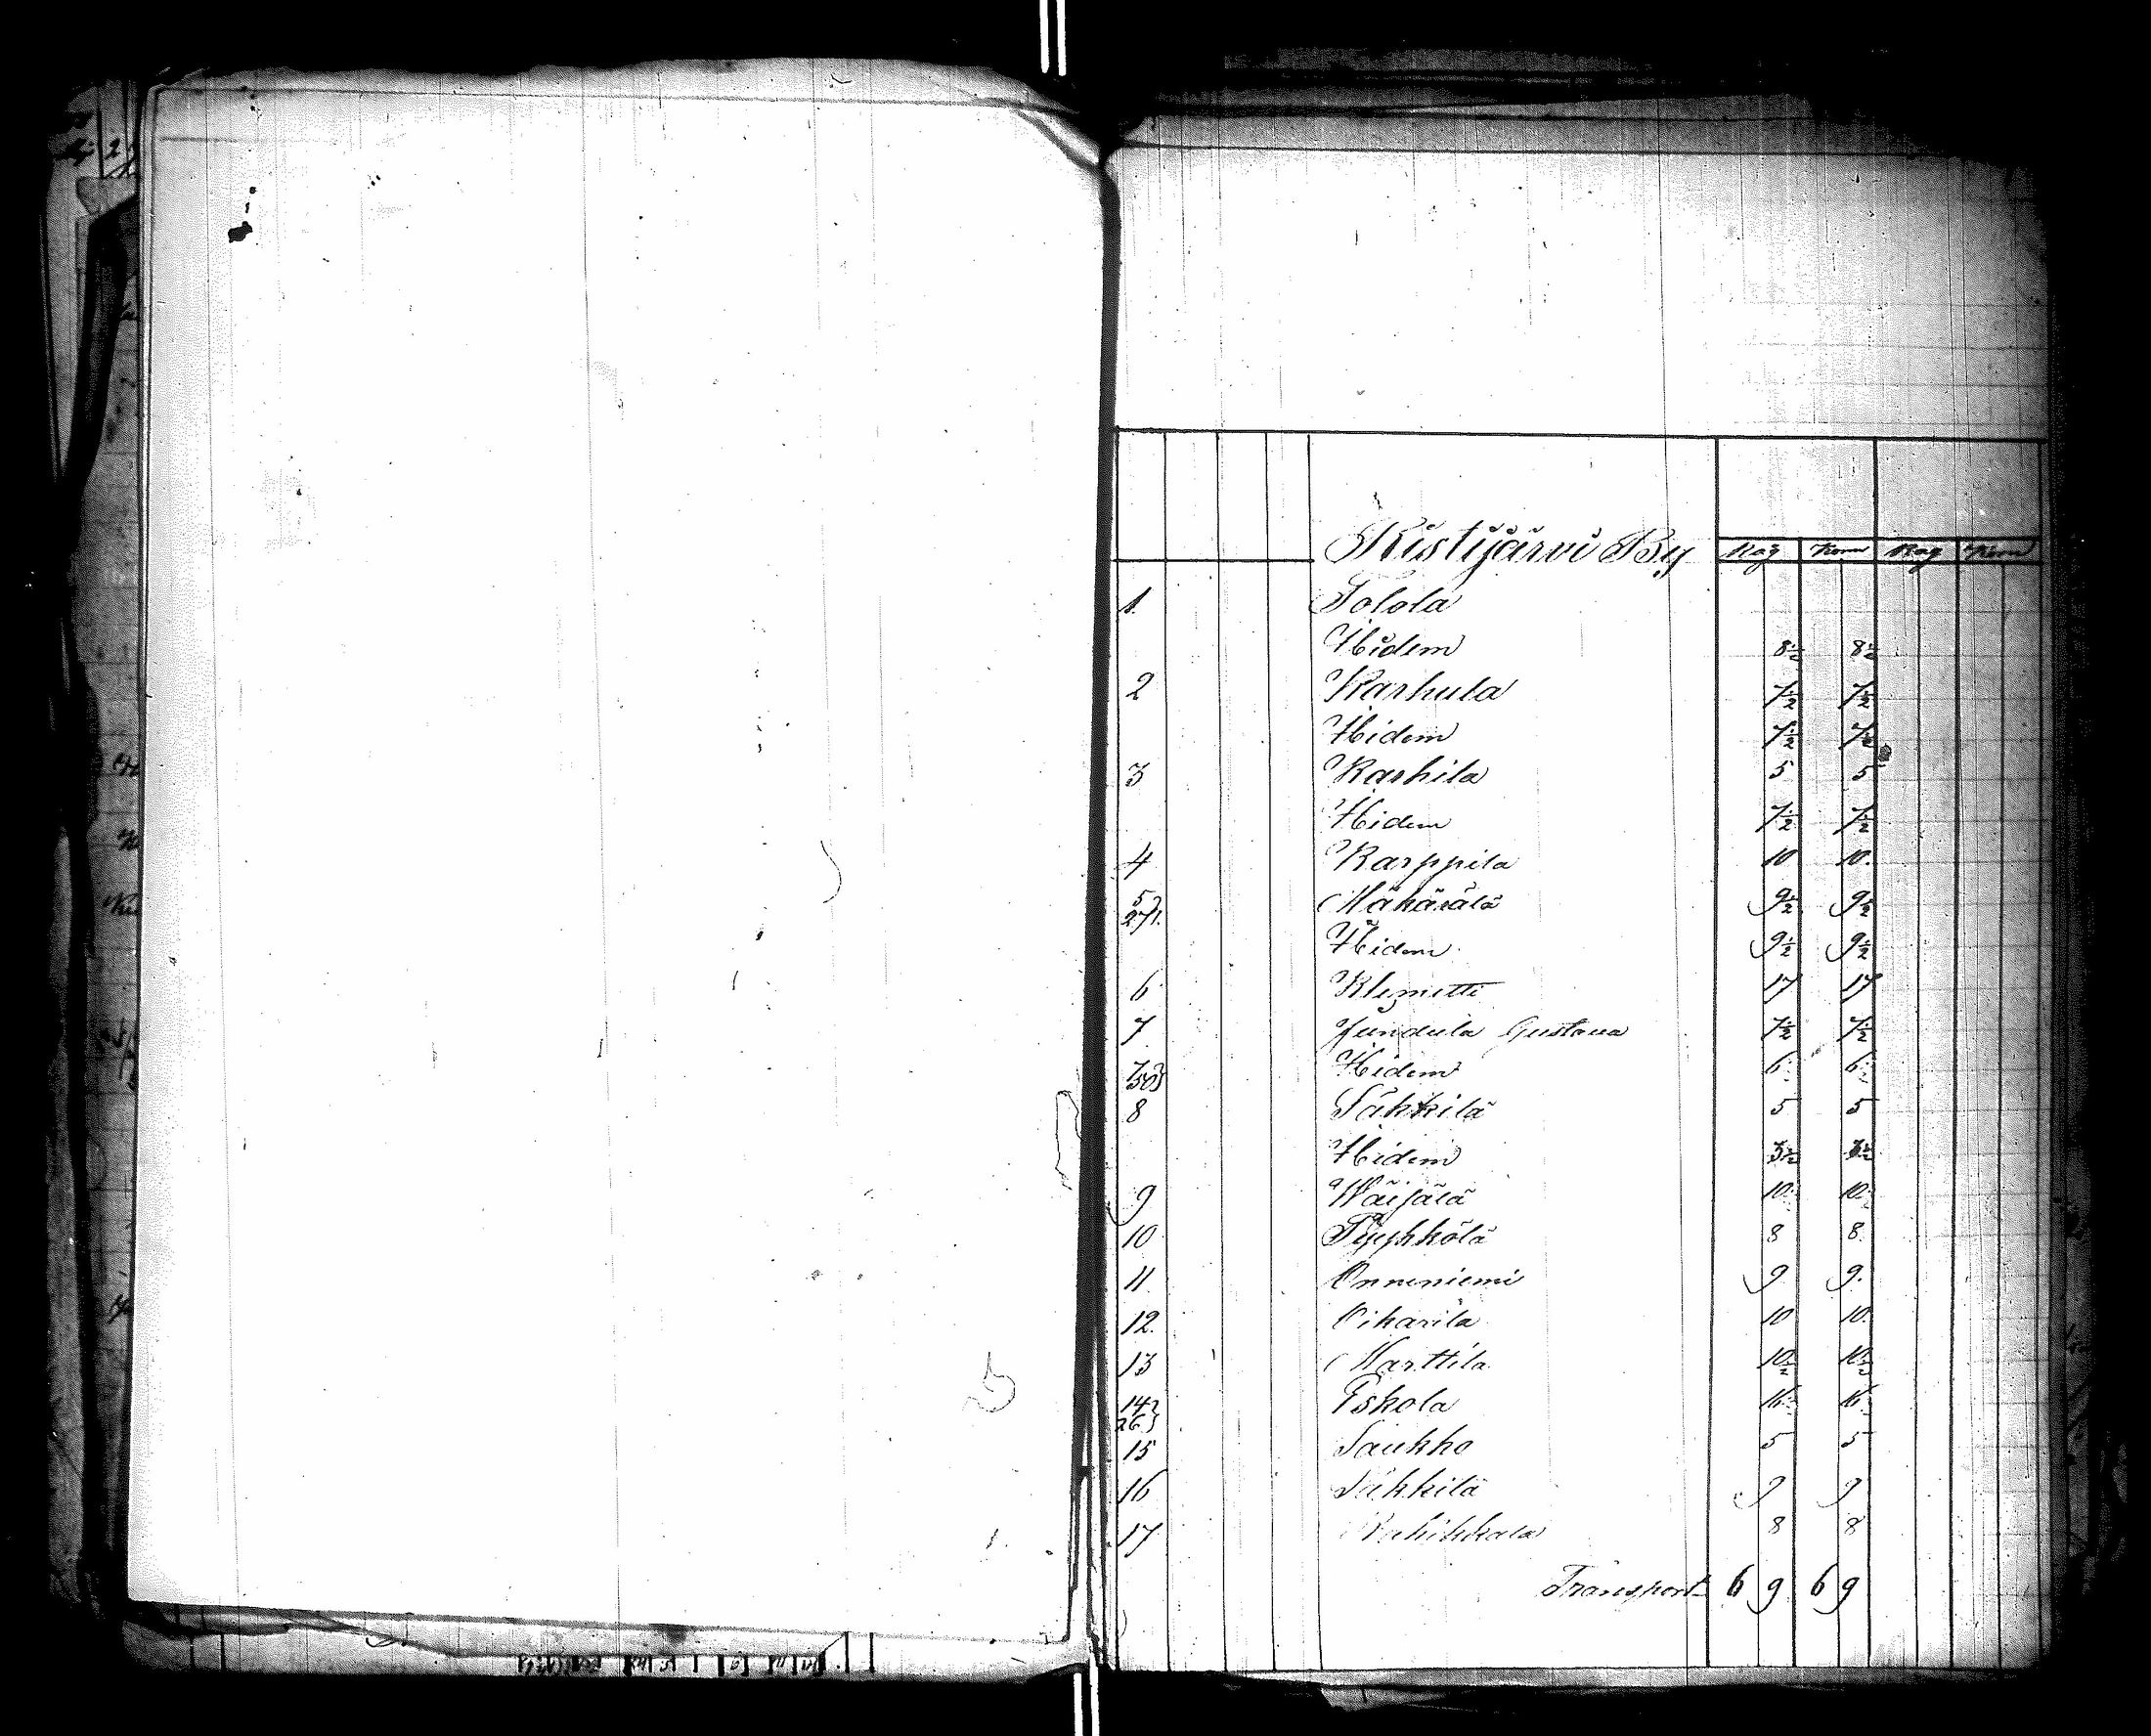 Ristijärvi By Råg Korn Råg Korn
1. Tolola
Hidem 8½ 8½
2 Karhula 7½ 7½
Hidem 7½ 7½
3 Karhila 5 5
Hidem 7½ 7½
4 Karppila 10 10.
5 27 Mäkärälä 9½ 9½
Hidem 9½ 9½
6 Klemetti 17 17
7 Gustava 7½ 7½
7 30 Hidem 6 6
8 Säkkilä 5 5
Hidem 3½ 3½
9 Wäijälä 10 10
10 Pyykkölä 8 8
11 Onneniemi 9 9.
12. Oikarila 10 10.
13 Marttila 10½ 10½
14 26 Eskola 16 16
15 Saukko 5 5
16 Säkkilä 9 9
17 8 8
Transport 6 9 6 9